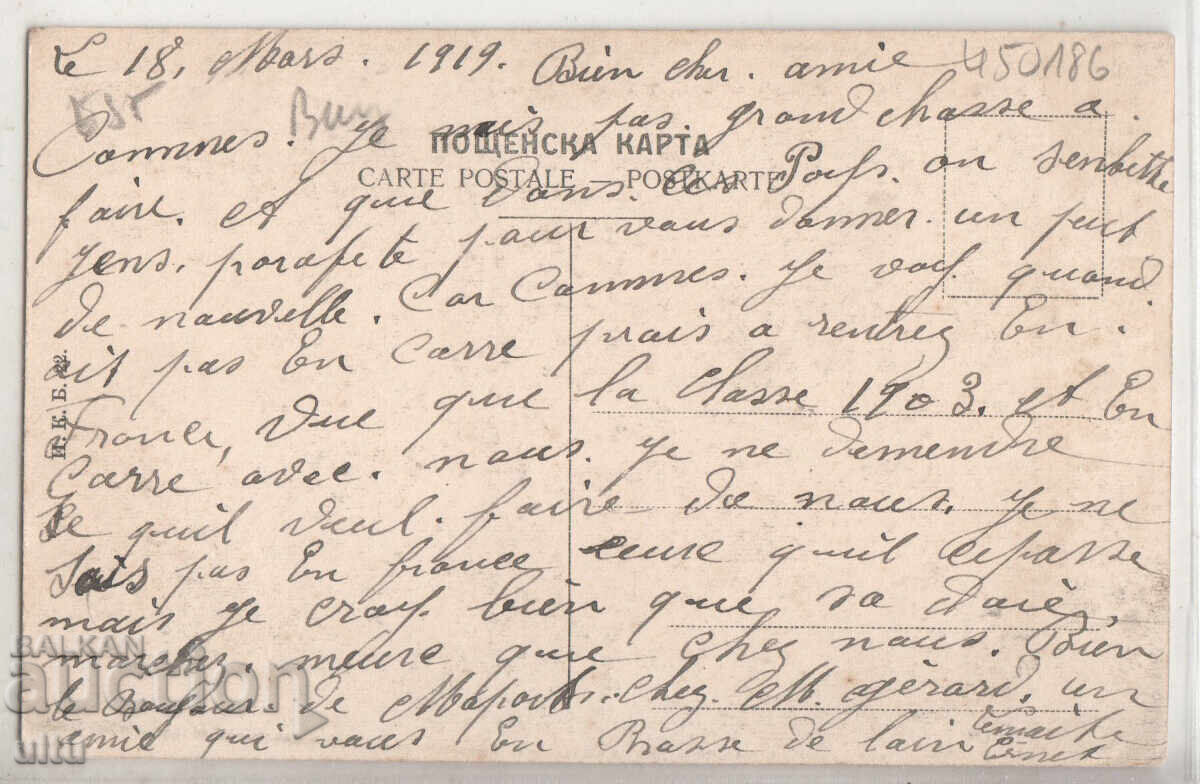 Le 18, Mars. 1919. Bien cher. amie 450186
Commes. Je nais pas. grand chasse a.
ПОЩЕНСКА КАРТА
CARTE POSTALE — POSTKARTE
faire. et que dans. Pays. on senbette
Jens. porafete pour vous donner. un peut
de nouvelle. Car Commes. Je voy. quand.
ait pas En Carre prais a rentrez En.
И. К. Б. 22.
France, vue que la Classe 1903. et En
Carre avec. nous. Je ne demendre
Se quil veul. faire de nous. Je ne
Sais pas En france quil cepasse
mais Je croy. bien que sa doie
marchez. meure que chez nous. Bien
le Bonjour. de Mapart. chez. M. gérard. un
amie qui vous En Brasse de lain Lemaite
Ernet
BALKAN
auction
ultu